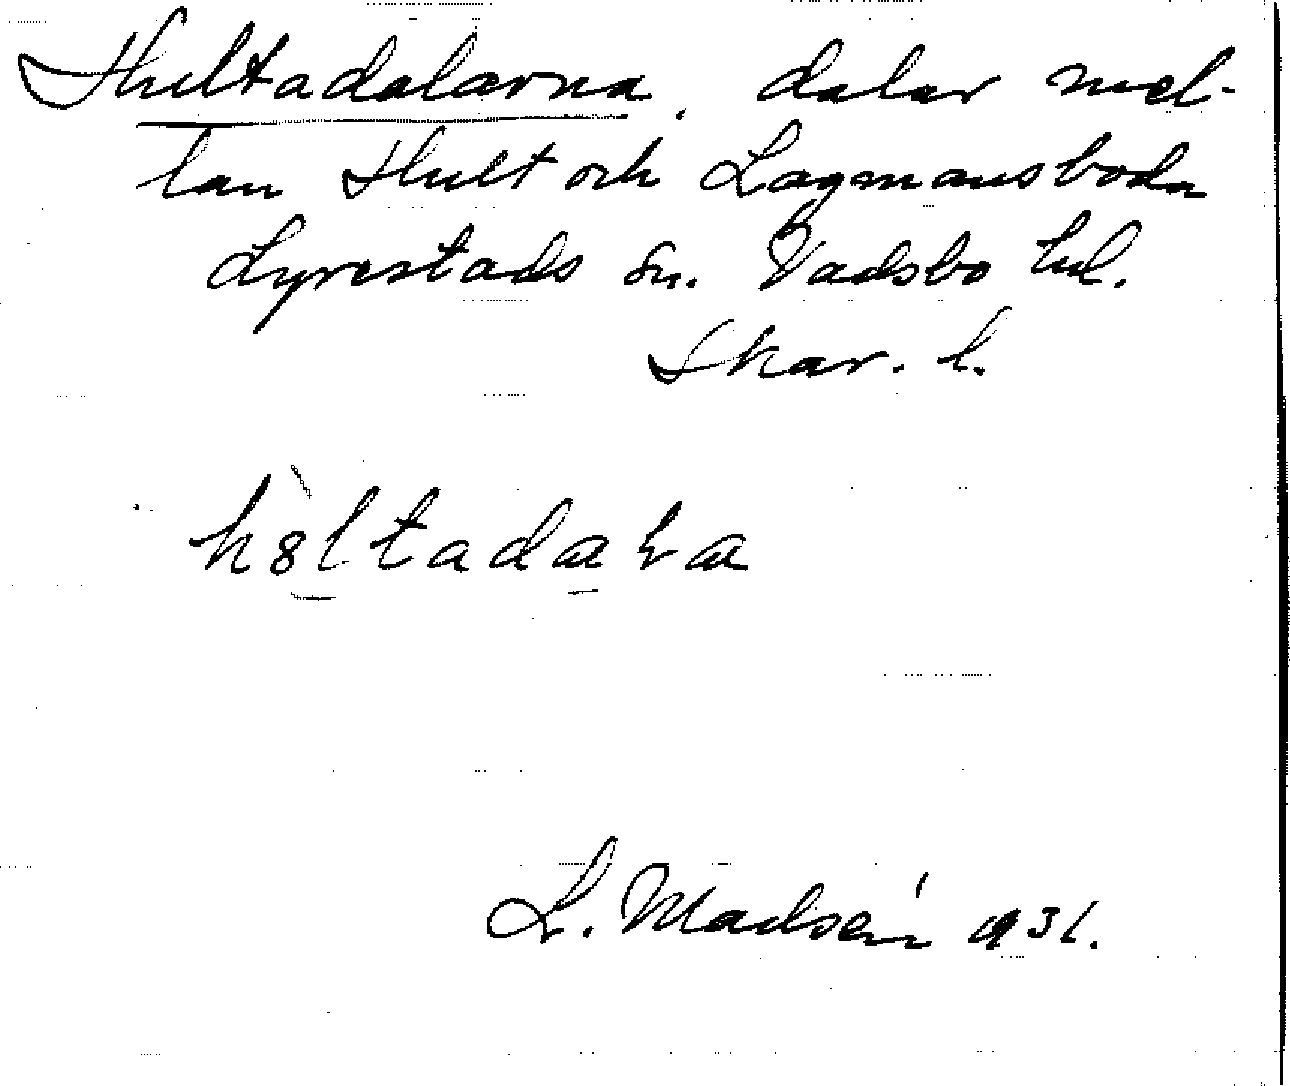 Hultadalarna, dalar mel-
lan Hult och Lagmansboda
Lyrestads sn. Vadsbo hd.
Skar. l.
L. Madsén 1931.